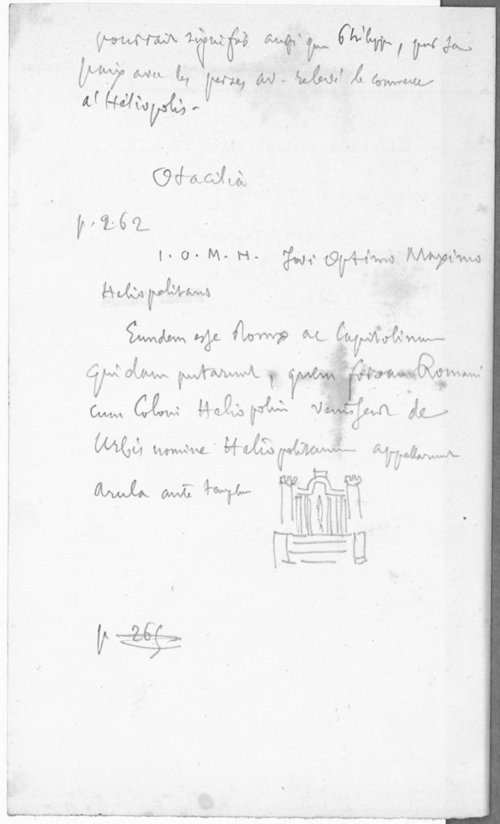 pourrait signifié aussi que Philippe, par sa
paix avec les perses av. relevé le commerce
a' Héliopolis.
Otacilia
p. 262
I. O. M. H. Jovi Optimo Maximo
Heliopolitano
Eundem esse Romæ ac Capitolinum
quidam putarunt, quem forsan Romani
cum Coloni Heliopolim venissent de
Urbis nomine Heliopolitanum appellarunt
arula ante templu
p 265